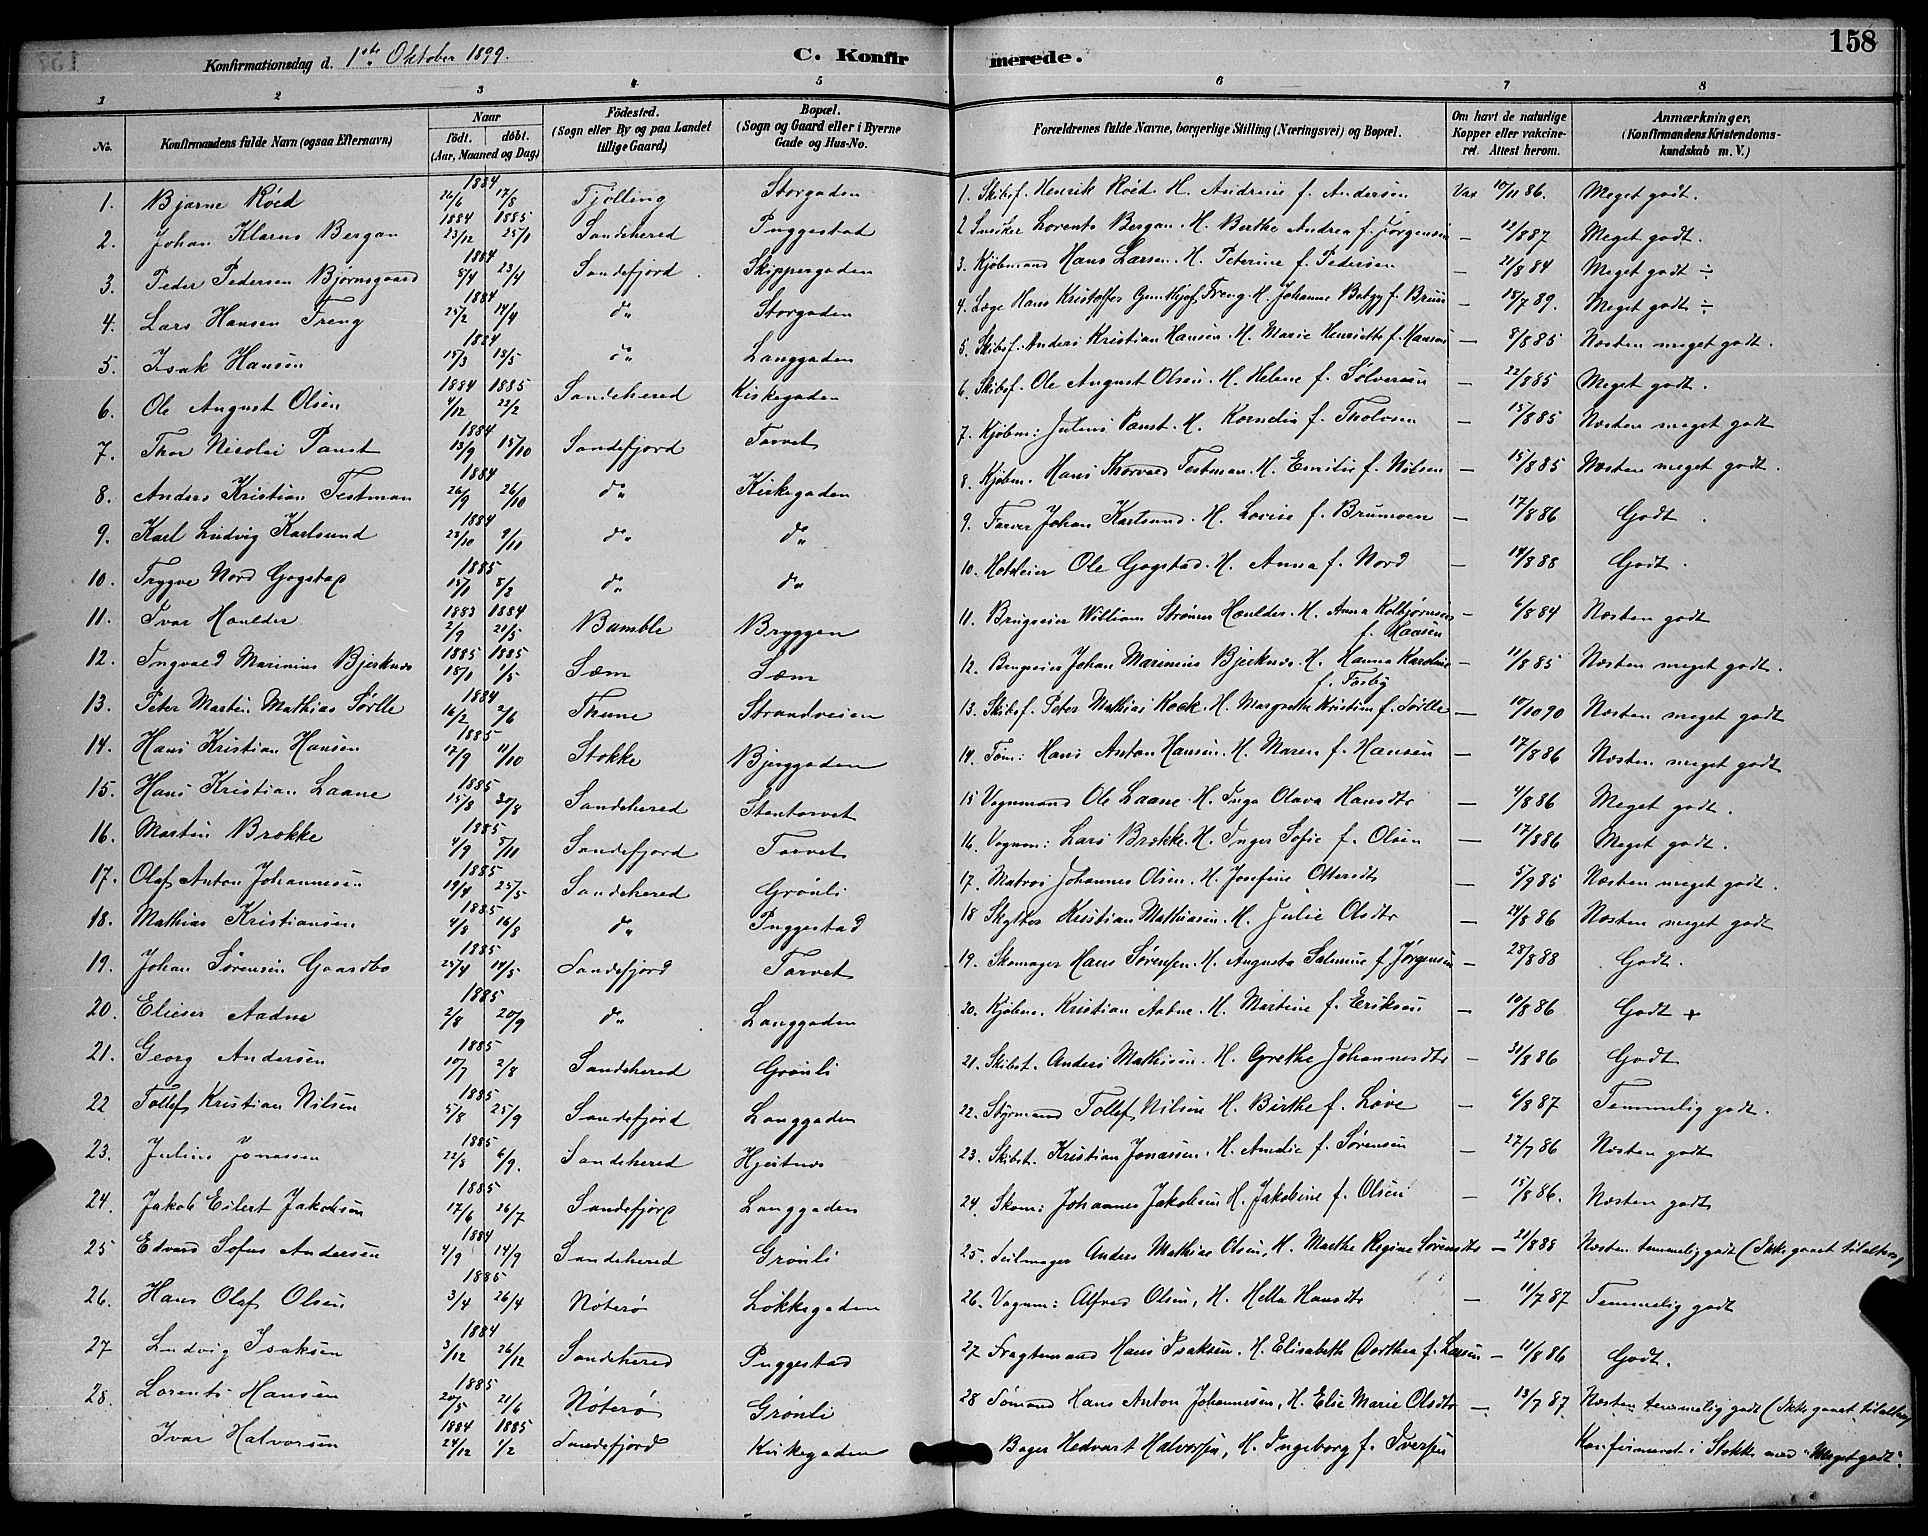 158
Konfirmationsdag d. 1ste Oktober 1899. C. Konfirmerede.
1 2 3 4 5 6 7 8
No. Konfirmandens fulde Navn (ogsaa Efternavn) Naar födt. döbt. (Aar, Maaned og Dag) Födested. (Sogn eller By og paa Landet tillige Gaard) Bopæl. (Sogn og Gaard eller i Byerne Gade og Hus-No. Forældrenes fulde Navne, borgerlige Stilling (Næringsvei) og Bopæl. Om havt de naturlige Kopper eller vakcineret. Attest herom. Anmærkninger. (Konfirmandens Kristendomskundskab m. V.)
1. Bjarne Röed 1884 26/6 17/8 Tjølling Storgaden 1. Skibsf. Henrik Röed. H. Andrine f. Andersen Vax 10/11 86. Meget godt.
2. Johan Klarus Bergan 1884 23/12 1885 25/1 Sandehered Puggestad 2 Snedker Lorents Bergan. H. Berthe Andrea f. Jørgensen — 12/8 87 Meget godt.
3. Peder Pedersen Bjørnsgaard 1884 5/4 23/4 Sandefjord. Skippergaden 3. Kjøbmand Hans Larsen. H. Peterine f. Pedersen — 21/8 84 Meget godt ÷
4. Lars Hansen Freng 1884 25/2 14/4 do Storgaden 4. Læge Hans Kristoffer Freng. H. Johanne f. Bruun — 18/7 89. Meget godt ÷
5. Isak Hansen 1884 15/3 13/5 do Langgaden 5. Skibsf. Anders Kristian Hansen. H. Marie Henriette f. Hansen — 8/8 85 Næsten meget godt.
6. Ole August Olsen 1884 4/12 1885 22/2 Sandehered Kirkegaden 6. Skibsf. Ole August Olsen. H. Helene f. Sølversen — 22/8 85 Meget godt.
7. Thor Nicolai Paust 1884 13/9 15/10 Sandefjord Torvet 7. Kjøbm: Julius Paust. H. Kornelia f. Tholvsen — 15/8 85 Næsten meget godt
8. Anders Kristian Testman 1884 26/9 26/10 do Kirkegaden 8. Kjøbm. Hans Thorvald Testman. H. Emilie f. Nilsen — 15/8 85 Næsten meget godt.
9. Karl Ludvig Karlsund 1884 23/10 9/11 do do 9. Farver Johan Karlsund. H. Lovise f. Brumoen — 17/8 86 Godt.
10. Trygve Nord Gogstad 1885 15/1 8/2 do do 10. Hoteleier Ole Gogstad. H. Anna f. Nord — 14/8 88 Godt.
11. Ivar Houlder 1883 2/9 1884 21/5 Bamble Bryggen 11. Brugseier William Strømer Houlder. H. Anna Kolbjørnsen f. Hansen — 6/8 84 Næsten godt
12. Ingvald Marinius Bjerknes 1885 18/1 1885 1/5 Sæm Sæm 12. Brugseier Johan Marinius Bjerknes. H. Hanna Karoline f. Foshy — 11/8 85 Næsten meget godt.
13. Peter Martin Mathias Sørlle 1884 16/2 2/6 Thune Strandveien 13. Skibsf. Peter Mathias Kock. H. Margrethe Kristine f. Sørlle — 10/10 90 Næsten meget godt
14. Hans Kristian Hansen 1885 17/9 11/10 Stokke Bjerggaden 14. Tøm: Hans Anton Hansen. H. Maren f. Hansen — 17/8 86 Næsten meget godt
15. Hans Kristian Laane 1885 15/8 30/8 Sandehered Stentorvet 15 Vognmand Ole Laane. H. Inga Olava Hansdtr — 4/8 86 Meget godt.
16. Martin Brække 1885 4/9 8/11 Sandefjord Torvet 16. Vognm: Lars Brække. H. Inger Sofie f. Olsen — 17/8 86 Meget godt.
17. Olaf Anton Johannesen 1885 19/4 25/5 Sandehered Grønli 17. Matros Johannes Olsen. H. Josefine Ottersdtr — 5/9 85 Næsten meget godt.
18. Mathias Kristiansen 1885 4/8 16/8 do Puggestad 18 Skytter Kristian Mathiasen. H. Julie Olsdtr — 24/8 86 Næsten meget godt
19. Johan Sørensen Gaardbo 1885 25/4 14/5 Sandefjord Torvet 19. Skomager Hans Sørensen. H. Augusta Salmine f. Jørgensen — 28/8 88 Godt.
20. Elieser Aadne 1885 2/8 20/9 do Langgaden 20. Kjøbm. Kristian Aadne. H. Martine f. Eriksen — 10/8 86 Godt +
21. Georg Andersen 1885 10/7 2/8 Sandehered Grønli 21. Skibst. Anders Mathisen. H. Grethe Johannesdtr — 31/8 86 Godt
22 Tollef Kristian Nilsen 1885 5/8 25/9 Sandefjord Langgaden 22. Styrmand Tollef Nilsen H. Birthe f. Løve — 6/8 87 Temmelig godt.
23. Julius Jonassen 1885 22/8 6/9. Sandehered Hjertnes 23. Skibst. Kristian Jonassen. H. Amalie f. Sørensen — 27/7 86 Næsten godt
24. Jakob Eilert Jakobsen 1885 17/6 26/7 Sandefjord Langgaden 24. Skom: Johannes Jakobsen H. Jakobine f. Olsen — 15/8 86. Næsten godt
25 Edvard Sofus Andersen 1884 4/9 14/9 Sandehered Grønli 25. Seilmager Anders Mathias Olsen, H. Marthe Regine Sørensdtr — 21/8 88 Næsten temmelig godt (Ikke gaaet til alters)
26. Hans Olaf Olsen 1885 3/4 26/4 Nøterø Løkkegaden 26. Vognm: Alfred Olsen, H. Hella Hansdtr — 11/7 87 Temmelig godt
27 Ludvig Isaksen 1884 3/12 26/12 Sandehered Puggestad 27 Fragtemand Hans Isaksen. H. Elisabeth Dorthea f. Larsen — 11/8 86 Godt.
28. Lorents Hansen 1885 20/5 21/6 Nøterø Grønli 28 Sømand Hans Anton Johannesen, H. Elie Marie Olsdtr — 13/7 87 Næsten temmelig godt (Ikke gaaet til alters)
Ivar Halvorsen 1884 24/12 1885 1/2 Sandefjord Kirkegaden Bager Hedvart Halvorsen, H. Ingeborg f. Iversen Konfirmeret i Stokke med "Meget godt".